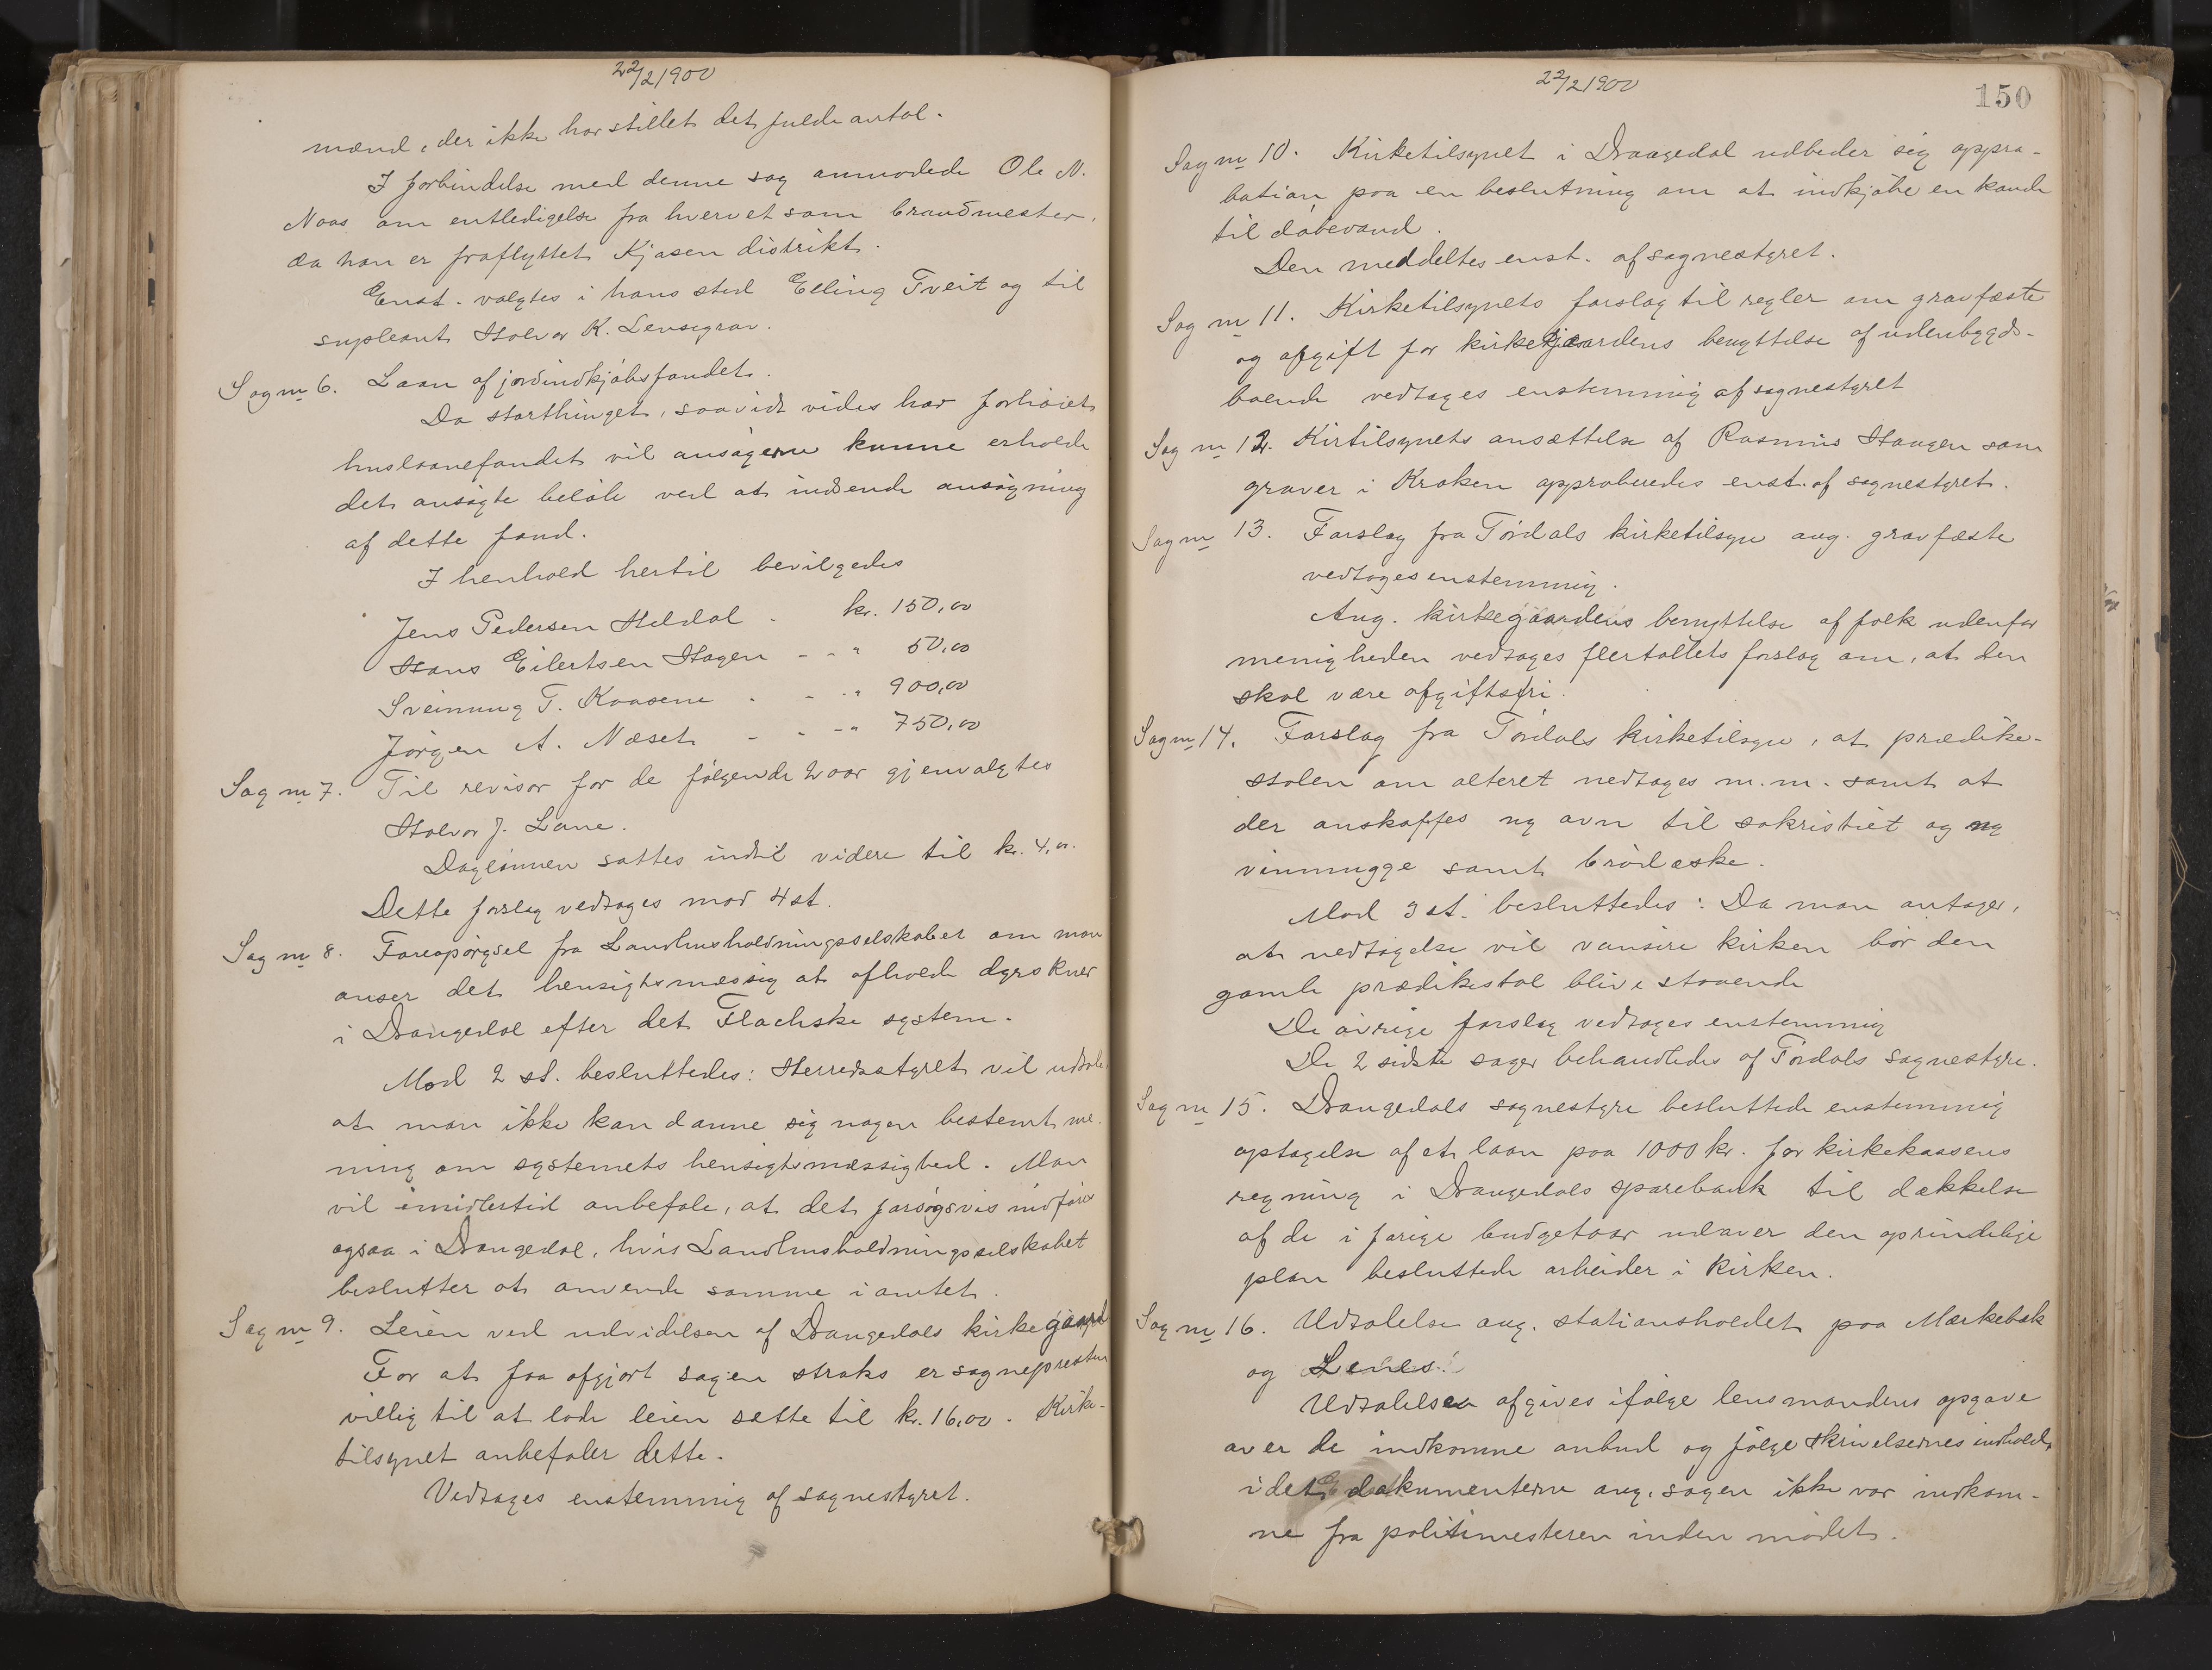 22/2 1900
mænd, der ikke har stillet det fulde antal.
I forbindelse med denne sag anmodede Ole N.
Naas om entledigelse fra hvervet som brandmester,
da han er fraflyttet Kjøsen distrikt.
Enst. valgtes i hans sted Elling Tveit og til
supleant Halvor K. Lensegrav.
Sag nr 6. Laan af jordindkjøbsfondet.
Da storthinget, saavidt vides har forhøiet
huslaanefondet vil ansøgerne kunne erholde
det ansøgte beløb ved at indsende ansøgning
af dette fond.
I henhold hertil bevilgedes
Jens Pedersen Heldal . kr. 150,00
Hans Eilertsen Hagen - - " 50,00
Sveinung T. Kaasene . - - " 900,00
Jørgen A. Næset - - - " 750,00
Sag nr 7. Til revisor for de følgende 2 aar gjenvalgtes
Halvor J. Lane.
Daglønnen sattes indtil videre til kr. 4,00.
Dette forslag vedtages mod 4 st.
Sag nr 8. Forespørgsel fra Landhusholdningsselskabet om man
anser det hensigtsmæssig at afholde dyrskuer
i Drangedal efter det Flachske system.
Mod 2 st. besluttedes: Herredsstyret vil udtale,
at man ikke kan danne sig nogen bestemt me-
ning om systemets hensigtsmæssighed. Man
vil imidlertid anbefale, at det forsøgsvis indføres
ogsaa i Drangedal, hvis Landhusholdningsselskabet
beslutter at anvende samme i amtet.
Sag nr 9. Leien ved udvidelsen af Drangedals kirkegaard
For at faa afgjort sagen straks er sogneprestен
villig til at lade leien sætte til kr. 16,00. Kirke-
tilsynet anbefaler dette.
Vedtages enstemmig af sognestyret.
22/2 1900
150
Sag nr 10. Kirketilsynet i Drangedal udbeder sig appro-
bation paa en beslutning om at indkjøbe en kande
til døbevand.
Den meddeltes enst. af sognestyret.
Sag nr 11. Kirketilsynets forslag til regler om gravfæste
og afgift for kirkegaardens benyttelse af udenbygds-
boende vedtages enstemmig af sognestyret
Sag nr 12. Kirtilsynets ansættelse af Rasmus Haugen som
graver i Kroken approberedes enst. af sognestyret.
Sag nr 13. Forslag fra Tørdals kirketilsyn ang. gravfæste
vedtages enstemmig.
Ang. kirkegaardens benyttelse af folk udenfor
menigheden vedtages flertallets forslag om, at den
skal være afgiftsfri.
Sag nr 14. Forslag fra Tørdals kirketilsyn, at prædike-
stolen om alteret nedtages m.m. samt at
der anskaffes ny ovn til sakristiet og ny
vinmugge samt brødæske.
Mod 3 st. besluttedes: Da man antager,
at nedtagelse vil vansire kirken bør den
gamle prædikestol blive staaende
De øvrige forslag vedtages enstemmig
De 2 sidste sager behandledes af Tørdals sognestyre.
Sag nr 15. Drangedals sognestyre besluttede enstemmig
optagelse af et laan paa 1000 kr. for kirkekassens
regning i Drangedals sparebank til dækkelse
af de i forrige budgetaar udover den oprindelige
plan besluttede arbeider i kirken.
Sag nr 16. Udtalelse ang. stationsholdet paa Mærkebæk
og Lenes.
Udtalelsen afgives ifølge lensmandens opgave
over de indkomne anbud og følgeskrivelsernes indhold,
idet dokumenterne ang. sagen ikke var indkom-
ne fra politimesteren inden mødet.